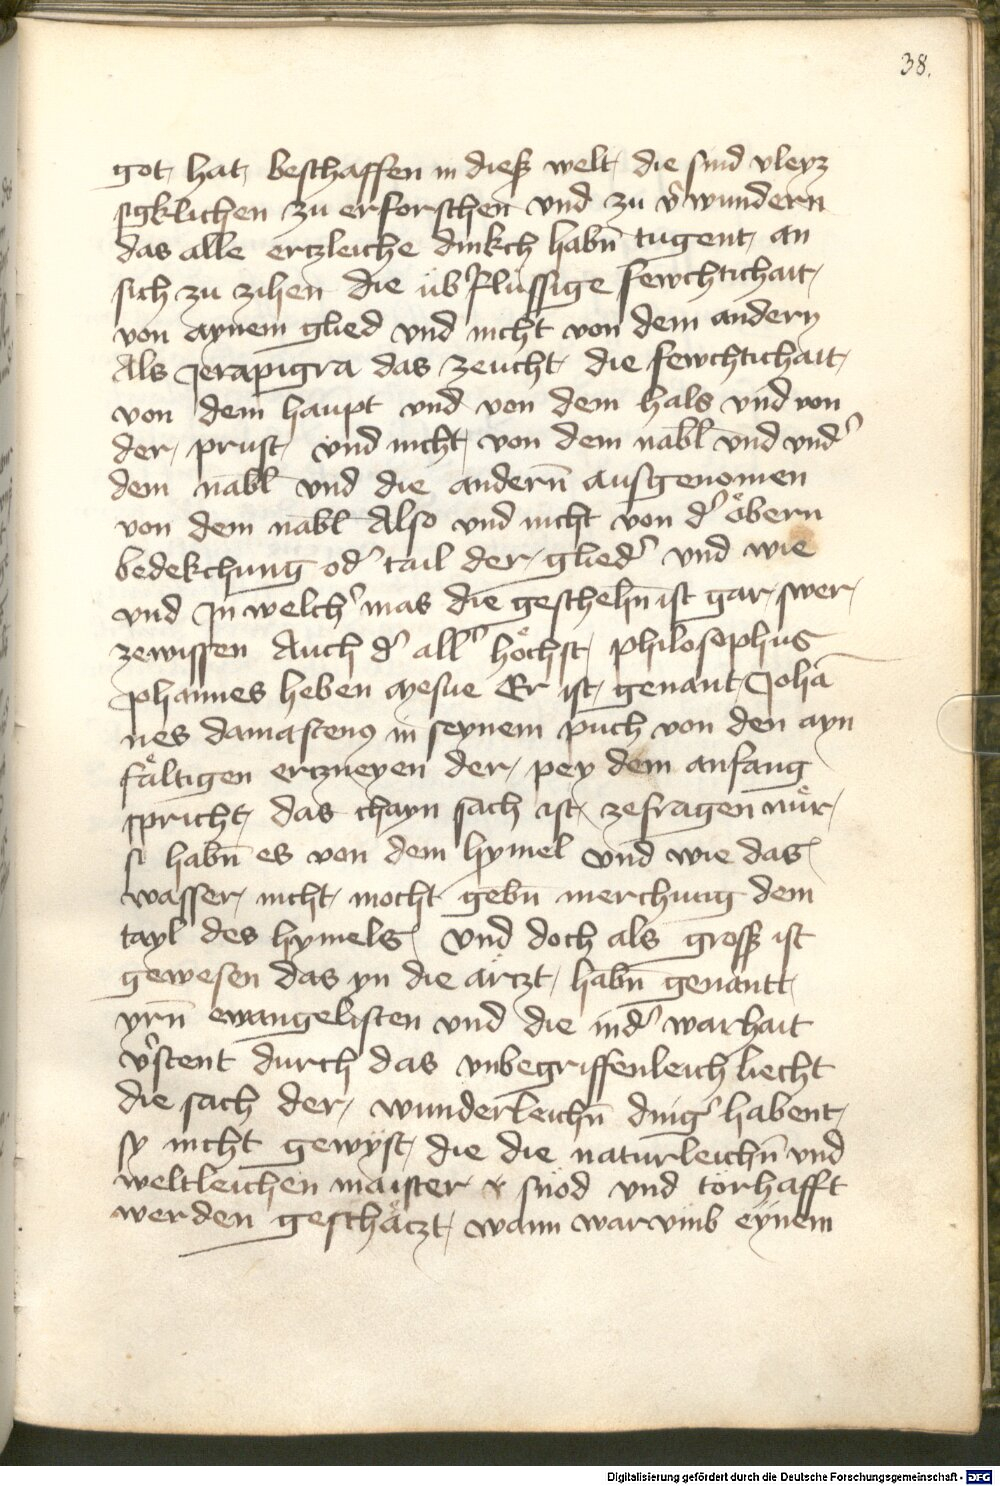 38.
got hat beschaffen in dieß welt die sind vleyz
sigklichen zu erforschen vnd zu v̾wundern
das alle ertzleiche dinkch habn̄ tugent an
sich zu zihen die üb̾flüssige fewchtichait
von aynem glied vnd nicht von dem andern
Als Jerapigra das zeucht die fewchtichait
von dem haupt vnd von dem hals vnd von
der prust vnd nicht von dem nabl̄ vnd vnd̾
dem nabl̄ vnd die andern̄ ausgenomen
von dem nabl̄ Also vnd nicht von d̾ obern
bedekchung od̾ tail der glied̾ vnd wie
vnd Jn welch̾ mas die geschehn̄ ist gar swer
zewissen Auch d̾ all̾ höchst philosophus
Johannes heben mesue Er ist genant Johā
nes damascenꝰ in seynem puch von den ayn
fältigen ertzneyen der pey dem anfang
spricht das chayn sach ist zefragen nür
si habn̄ es von dem hymel vnd wie das
wasser nicht mocht gebn̄ merchung dem
tayl des hymels vnd doch als gross ist
gewesen das yn die ärtzt habn̄ genantt
yrn̄ ewangelisten vnd die ind̾ warhait
v̾stent durch das vnbegriffenleich liecht
die sach der wunderleichn̄ ding̾ habent
sy nicht gewyst die die naturleichn̄ vnd
weltleichen maister snöd vnd törhafft
werden geschäczt wann warvmb eynem
Digitalisierung gefördert durch die Deutsche Forschungsgemeinschaft - DFG